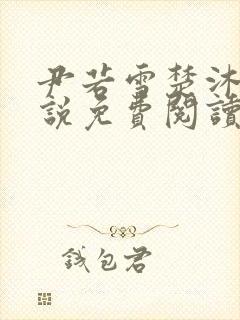 尹若雪楚沐
說免費閱讀
錢包君